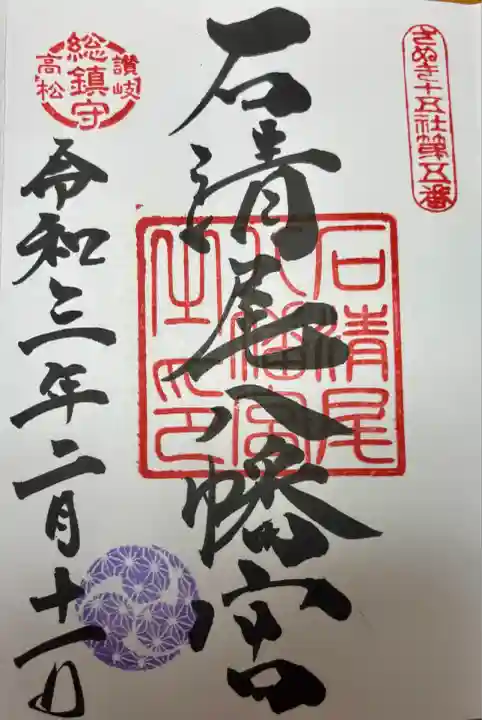 さぬき十五社第五番
石清尾八幡宮
石清尾
八幡宮
之印
讃岐
総鎮守
高松
令和三年二月十一日